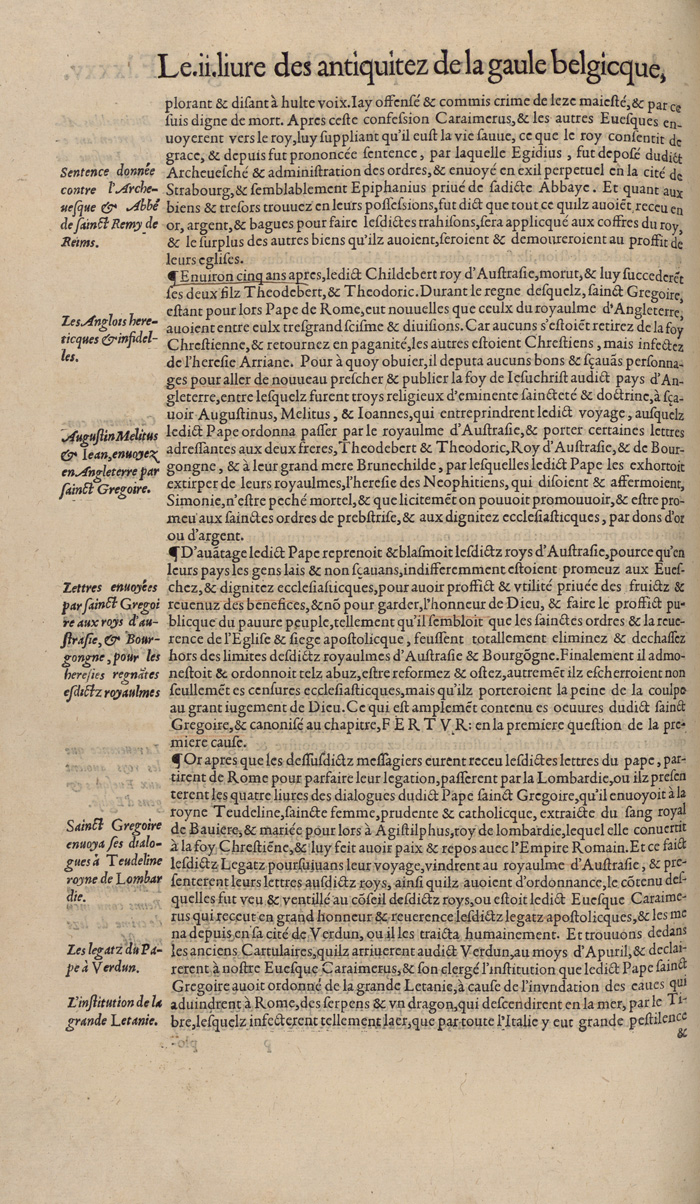 Le.ii.liure des antiquitez de la gaule belgicque,
plorant & disant à hulte voix. Iay offensé & commis crime de leze maiesté, & par ce
suis digne de mort. Apres ceste confession Caraimerus, & les autres Euesques en-
uoyerent vers le roy, luy suppliant qu'il eust la vie sauue, ce que le roy consentit de
grace, & depuis fut prononcée sentence, par laquelle Egidius, fut deposé dudict
Archeuesché & administration des ordres, & enuoyé en exil perpetuel en la cité de
Strabourg, & semblablement Epiphanius priué de sadicte Abbaye. Et quant aux
biens & tresors trouuez en leurs possessions, fut dict que tout ce quilz auoiẽt receu en
or, argent, & bagues pour faire lesdictes trahisons, sera applicqué aux coffres du roy,
& le surplus des autres biens qu'ilz auoient, seroient & demoureroient au proffit de
leurs eglises.
Sentence donnée
contre l'Arche-
uesque & Abbé
de sainct Remy de
Reims.
¶ Enuiron cinq ans apres, ledict Childebert roy d'Austrasie, morut, & luy succederẽt
ses deux filz Theodebert, & Theodoric. Durant le regne desquelz, sainct Gregoire,
estant pour lors Pape de Rome, eut nouuelles que ceulx du royaulme d'Angleterre,
auoient entre eulx tresgrand scisme & diuisions. Car aucuns s'estoiẽt retirez de la foy
Chrestienne, & retournez en paganité, les autres estoient Chrestiens, mais infectez
de l'heresie Arriane. Pour à quoy obuier, il deputa aucuns bons & sçauãs personna-
ges pour aller de nouueau prescher & publier la foy de Iesuchrist audict pays d'An-
gleterre, entre lesquelz furent troys religieux d'eminente saincteté & doctrine, à sça-
uoir Augustinus, Melitus, & Ioannes, qui entreprindrent ledict voyage, ausquelz
ledict Pape ordonna passer par le royaulme d'Austrasie, & porter certaines lettres
adressantes aux deux freres, Theodebert & Theodoric, Roy d'Austrasie, & de Bour-
gongne, & à leur grand mere Brunechilde, par lesquelles ledict Pape les exhortoit
extirper de leurs royaulmes, l'heresie des Neophitiens, qui disoient & affermoient,
Simonie, n'estre peché mortel, & que licitemẽt on pouuoit promouuoir, & estre pro-
meu aux sainctes ordres de prebstrise, & aux dignitez ecclesiasticques, par dons d'or
ou d'argent.
Les Anglois here-
ticques & infidel-
les.
Augustin Melitus
& Iean, enuoyez
en Angleterre par
sainct Gregoire.
¶ D'auãtage ledict Pape reprenoit & blasmoit lesdictz roys d'Austrasie, pource qu'en
leurs pays les gens lais & non sçauans, indifferemment estoient promeuz aux Eues-
chez, & dignitez ecclesiasticques, pour auoir proffict & vtilité priuée des fruictz &
reuenuz des benefices, & nõ pour garder, l'honneur de Dieu, & faire le proffict pu-
blicque du pauure peuple, tellement qu'il sembloit que les sainctes ordres & la reue-
rence de l'Eglise & siege apostolicque, feussent totallement eliminez & dechassez
hors des limites desdictz royaulmes d'Austrasie & Bourgõgne. Finalement il admo-
nestoit & ordonnoit telz abuz, estre reformez & ostez, autremẽt ilz escherroient non
seullemẽt es censures ecclesiasticques, mais qu'ilz porteroient la peine de la coulpe
au grant iugement de Dieu. Ce qui est amplemẽt contenu es oeuures dudict sainct
Gregoire, & canonisé au chapitre, FERTVR: en la premiere question de la pre-
miere cause.
Lettres enuoyées
par sainct Gregoi
re aux roys d'au-
strasie, & Bour-
gongne, pour les
heresies regnãtes
esdictz royaulmes
¶ Or apres que les dessusdictz messagiers eurent receu lesdictes lettres du pape, par-
tirent de Rome pour parfaire leur legation, passerent par la Lombardie, ou ilz presen
terent les quatre liures des dialogues dudict Pape sainct Gregoire, qu'il enuoyoit à la
royne Teudeline, saincte femme, prudente & catholicque, extraicte du sang royal
de Bauiere, & mariée pour lors à Agistilphus, roy de lombardie, lequel elle conuertit
à la foy Chrestiẽne, & luy feit auoir paix & repos auec l'Empire Romain. Et ce faict
lesdictz Legatz poursuiuans leur voyage, vindrent au royaulme d'Austrasie, & pre-
senterent leurs lettres ausdictz roys, ainsi quilz auoient d'ordonnance, le cõtenu des-
quelles fut veu & ventillé au cõseil desdictz roys, ou estoit ledict Euesque Caraime-
rus qui receut en grand honneur & reuerence lesdictz legatz apostolicques, & les me
na depuis en sa cité de Verdun, ou il les traicta humainement. Et trouuons dedans
les anciens Cartulaires, quilz arriuerent audict Verdun, au moys d'Apuril, & declai-
rerent à nostre Euesque Caraimerus, & son clergé l'institution que ledict Pape sainct
Gregoire auoit ordonné de la grande Letanie, à cause de l'inundation des eaues qui
aduindrent à Rome, des serpens & vn dragon, qui descendirent en la mer, par le Ti-
bre, lesquelz infecterent tellement laer, que par toute l'Italie y eut grande pestilence
&
Sainct Gregoire
enuoya ses dialo-
gues à Teudeline
royne de Lombar
die.
Les legatz du Pa-
pe à Verdun.
L'institution de la
grande Letanie.